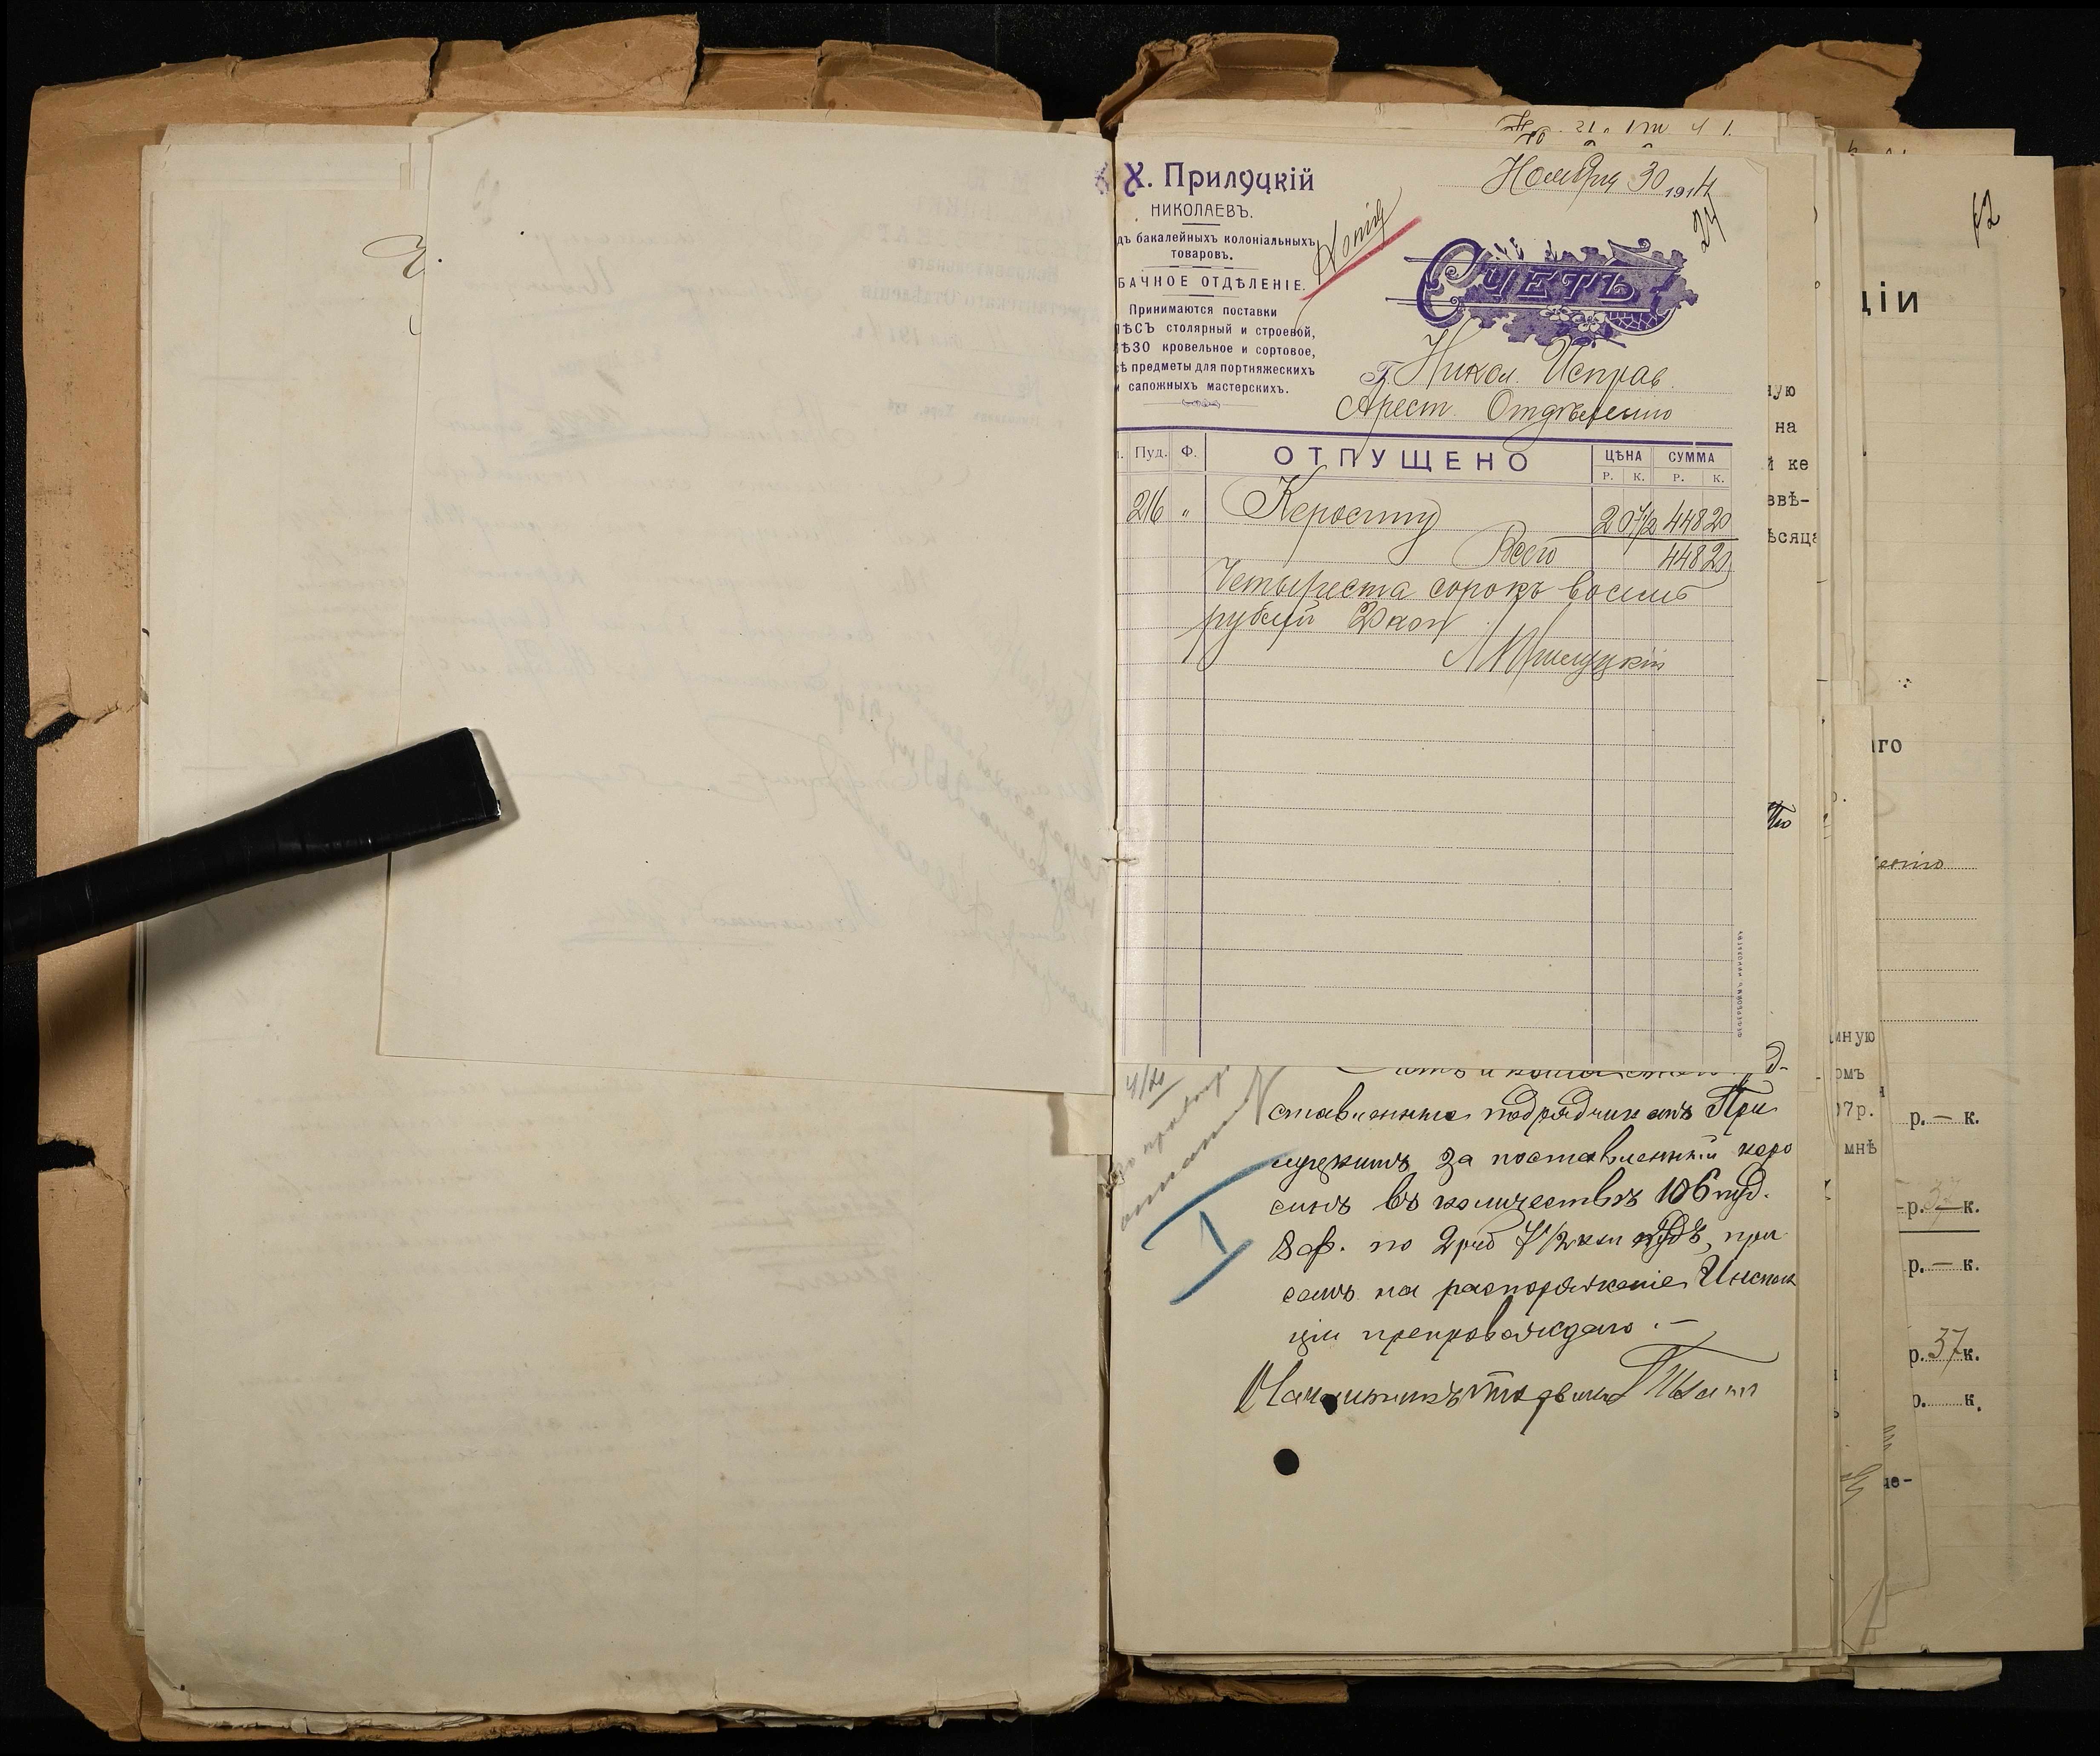 Х. Прилуцкій
НИКОЛАЕВЪ.
дъ бакалейныхъ колоніальныхъ
товаровъ.
БАЧНОЕ ОТДѢЛЕНІЕ.
Принимаются поставки
ѢСЪ столярный и строевой,
ѢЗО кровельное и сортовое,
ѣ предметы для портняжескихъ
и сапожныхъ мастерскихъ.
Копія
Ноября 30 1914
24
СЧЕТЪ
Г. Никол. Исправ.
Арест. Отдѣленію
Пуд. Ф. ОТПУЩЕНО ЦѢНА СУММА
Р. К. Р. К.
216 " Керосину 2 07 1/2 448 20
Всего 448 20
Четыреста сорокъ восемь
рублей 20 коп
Прилуцкій
4/XII
ставленные подрядчикомъ При
луцкимъ за поставленный керо
синъ въ количествѣ 106 пуд.
8 ф. по 2 руб 7 1/2 коп пудъ, при
семъ на распоряженіе Инспек
ціи препровождаю.—
Начальникъ
62
ціи
ную
на
й ке
звѣ-
ѣсяца
аго
мную
омъ
07р.
мнѣ
р. — к.
р. 37 к.
р. — к.
р. 37 к.
р. к.
че-